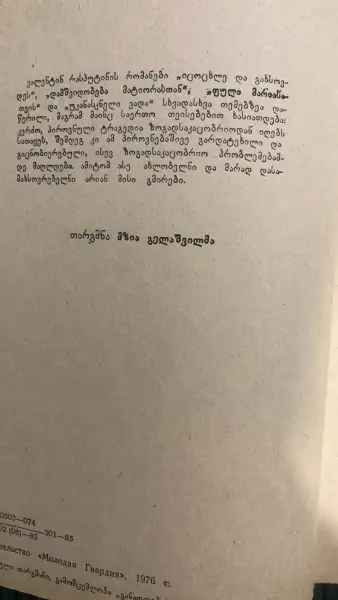 ვალენტინ რასპუტინის რომანები „იცოცხლე და გახსოვ-
დეს“, „დამშვიდობება მატიორასთან“, „ფული მარიასა-
თვის“ და „უკანასკნელი ვადა“ სხვადასხვა თემებზეა და-
წერილი, მაგრამ მაინც საერთო თვისებებით ხასიათდება:
კერძო, პიროვნული ტრაგედია ზოგადსაკაცობრიოდან იღებს
სათავეს, შემდეგ კი ამ პიროვნებაშივე გარდატეხილი და
გაცნობიერებული, ისევ ზოგადსაკაცობრიო პრობლემებამ-
დე მაღლდება. ამიტომ ასე ახლობელნი და მარად დასა-
მახსოვრებელნი არიან მისი გმირები.
თარგმნა მზია გელაშვილმა
0303—074
301—85
02 (08)—85
«Молодая Гвардия», 1976 г.
თარგმანი, გამომცემლობა